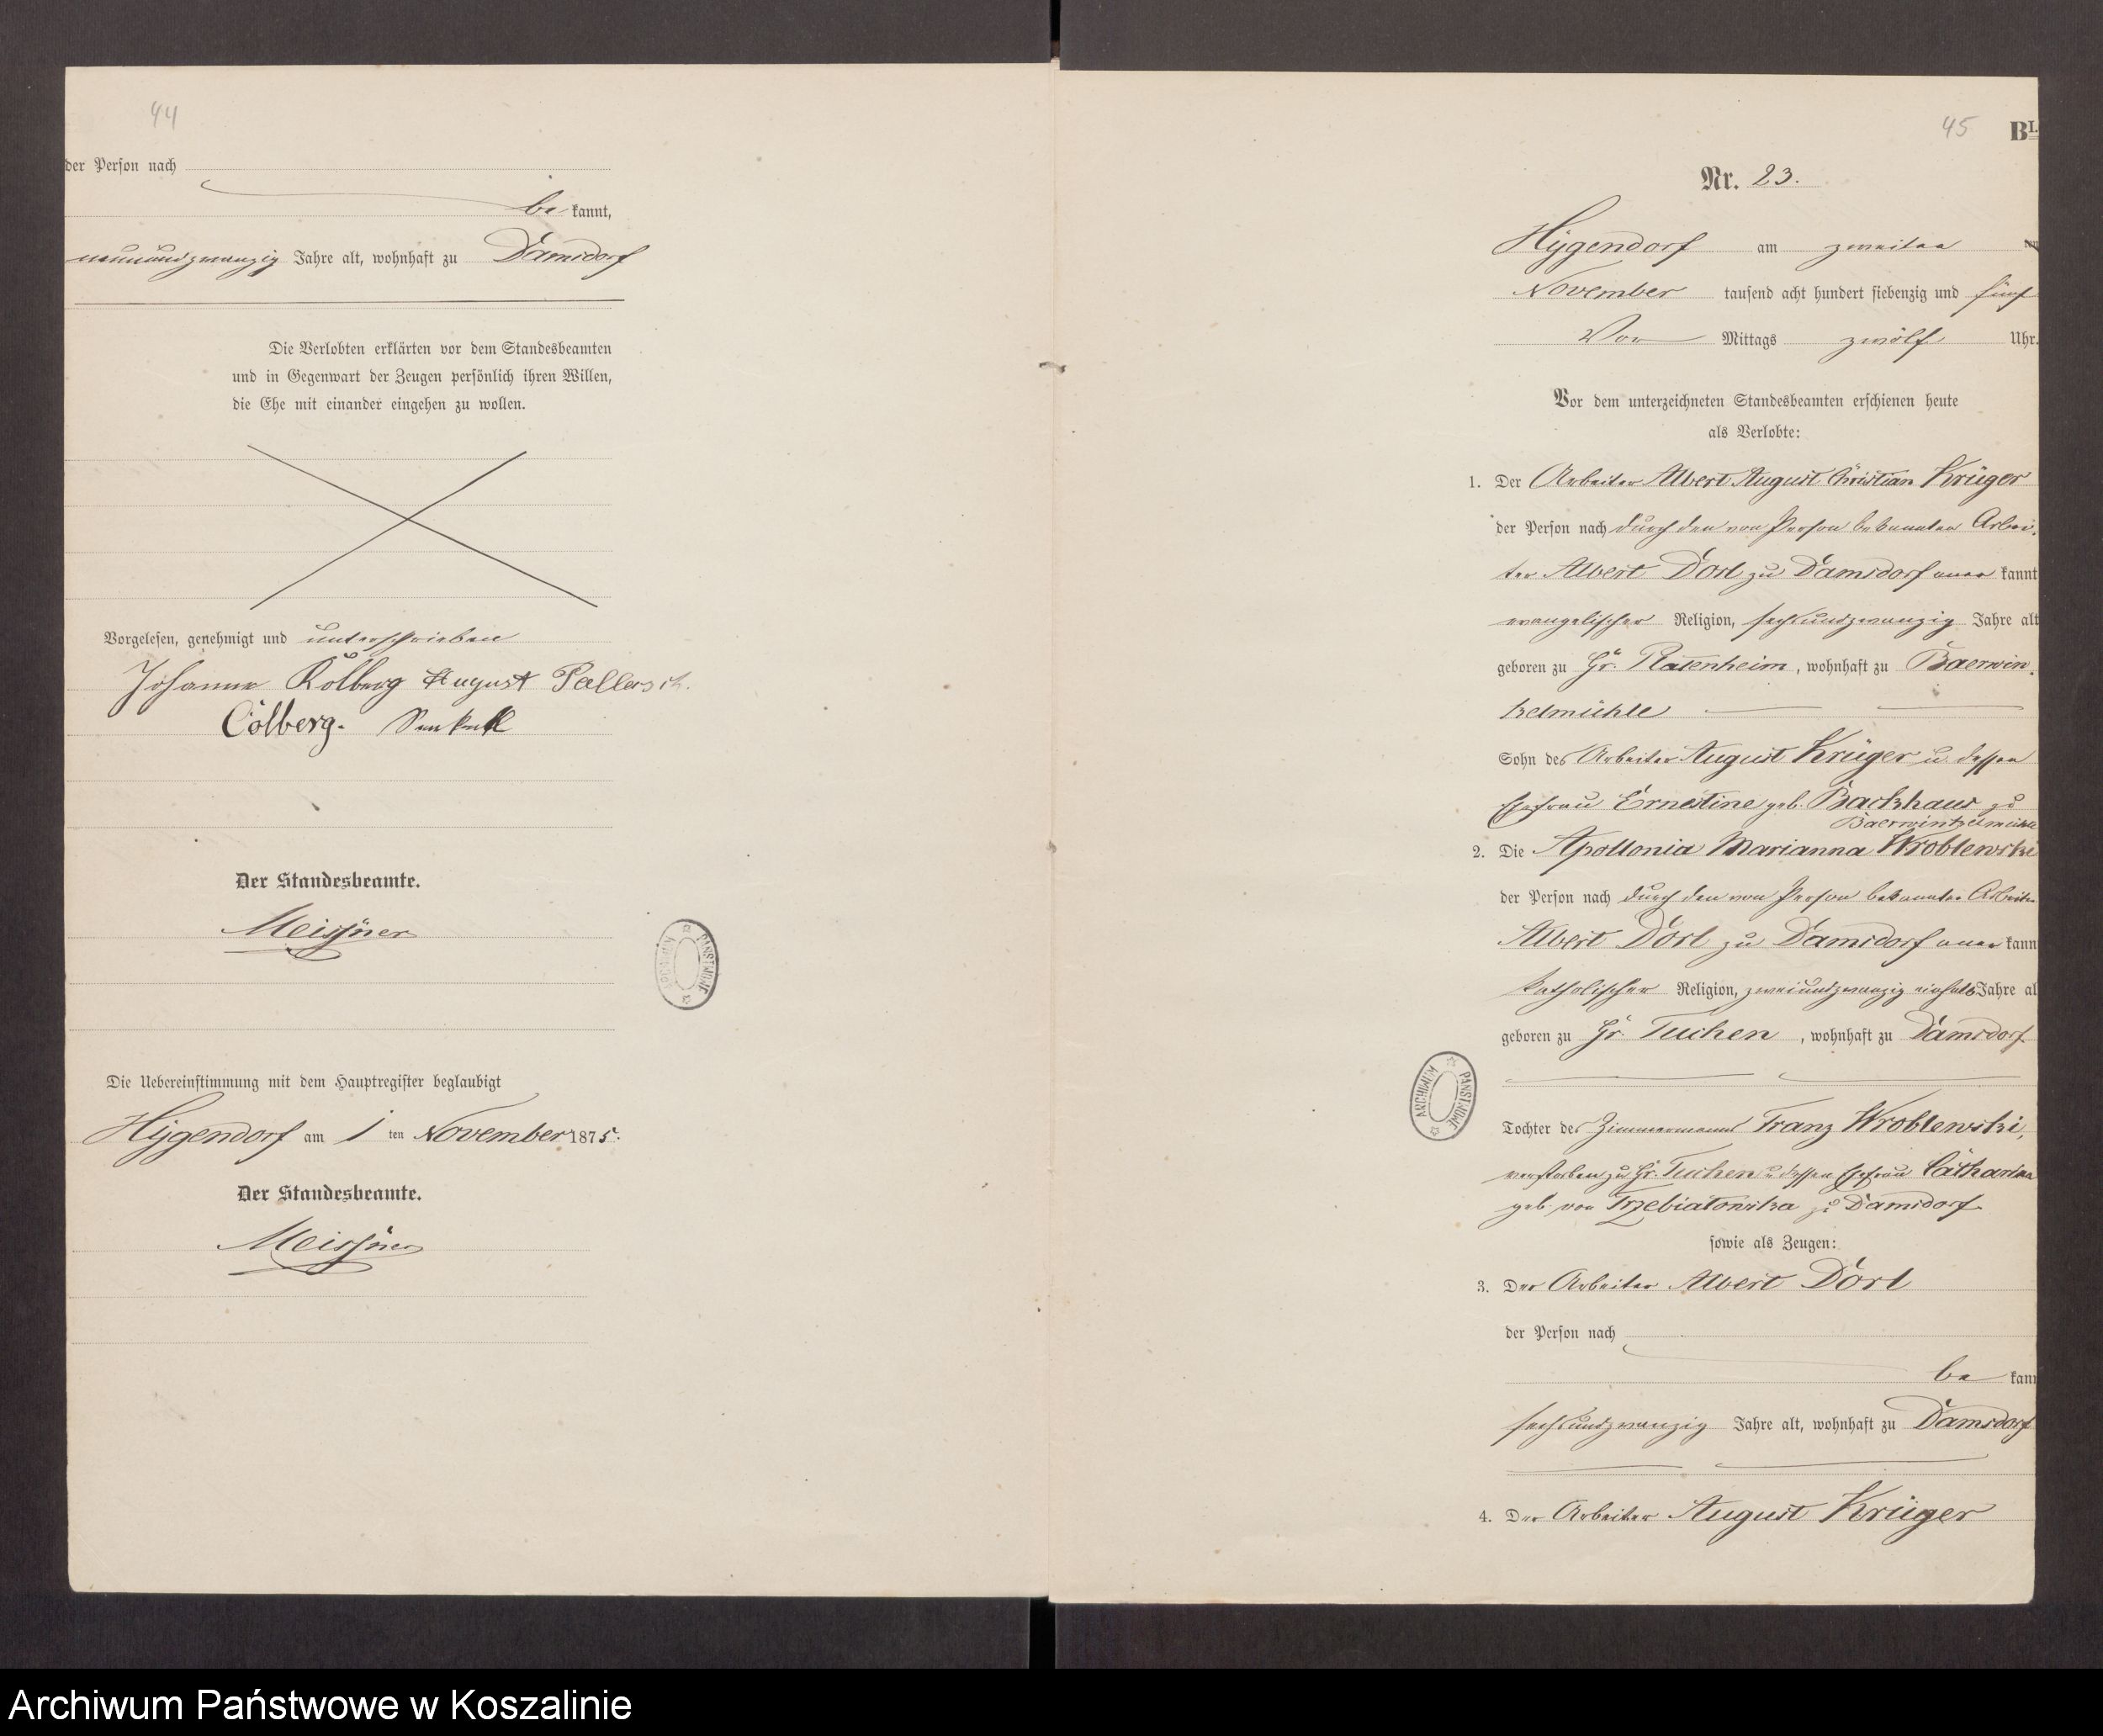 44
der Person nach
be kannt,
neunundzwanzig Jahre alt, wohnhaft zu Damsdorf
Die Verlobten erklärten vor dem Standesbeamten
und in Gegenwart der Zeugen persönlich ihren Willen,
die Ehe mit einander eingehen zu wollen.
Vorgelesen, genehmigt und unterschrieben
Johanne Kölberg August
Cölberg.
Der Standesbeamte.
Meissner
ARCHIWUM PAŃSTWOWE
Die Uebereinstimmung mit dem Hauptregister beglaubigt
Hygendorf am 1 ten November 1875.
Der Standesbeamte.
Meissner
45 B
Nr. 23.
Hygendorf am zweiten
November tausend acht hundert siebenzig und fünf
Vor Mittags zwölf Uhr.
Vor dem unterzeichneten Standesbeamten erschienen heute
als Verlobte:
1. Der Arbeiter Albert August Christian Krüger
der Person nach durch den von Person bekannten Arbei-
ter Albert Dorl zu Damsdorf aner kannt
evangelischer Religion, sechsundzwanzig Jahre alt
geboren zu Gr. Platenheim, wohnhaft zu Baerwin-
kelmühle
Sohn des Arbeiter August Krüger u. dessen
Ehefrau Ernestine geb. Backhaus zu
Baerwinkelmühle
2. Die Apollonia Marianna Wroblewski
der Person nach durch den von Person bekannten Arbeiter
Albert Dorl zu Damsdorf aner kann
katholischer Religion, zweiundzwanzig einhalb Jahre al
geboren zu Gr. Tuchen, wohnhaft zu Damsdorf
ARCHIWUM PAŃSTWOWE
Tochter des Zimmermanns Franz Wroblewski,
verstorben zu Gr. Tuchen u. dessen Ehefrau Catharina
geb. von Trzebiatowska zu Damsdorf
sowie als Zeugen:
3. Der Arbeiter Albert Dorl
der Person nach
be kann
sechsundzwanzig Jahre alt, wohnhaft zu Damsdorf
4. Der Arbeiter August Krüger
Archiwum Państwowe w Koszalinie